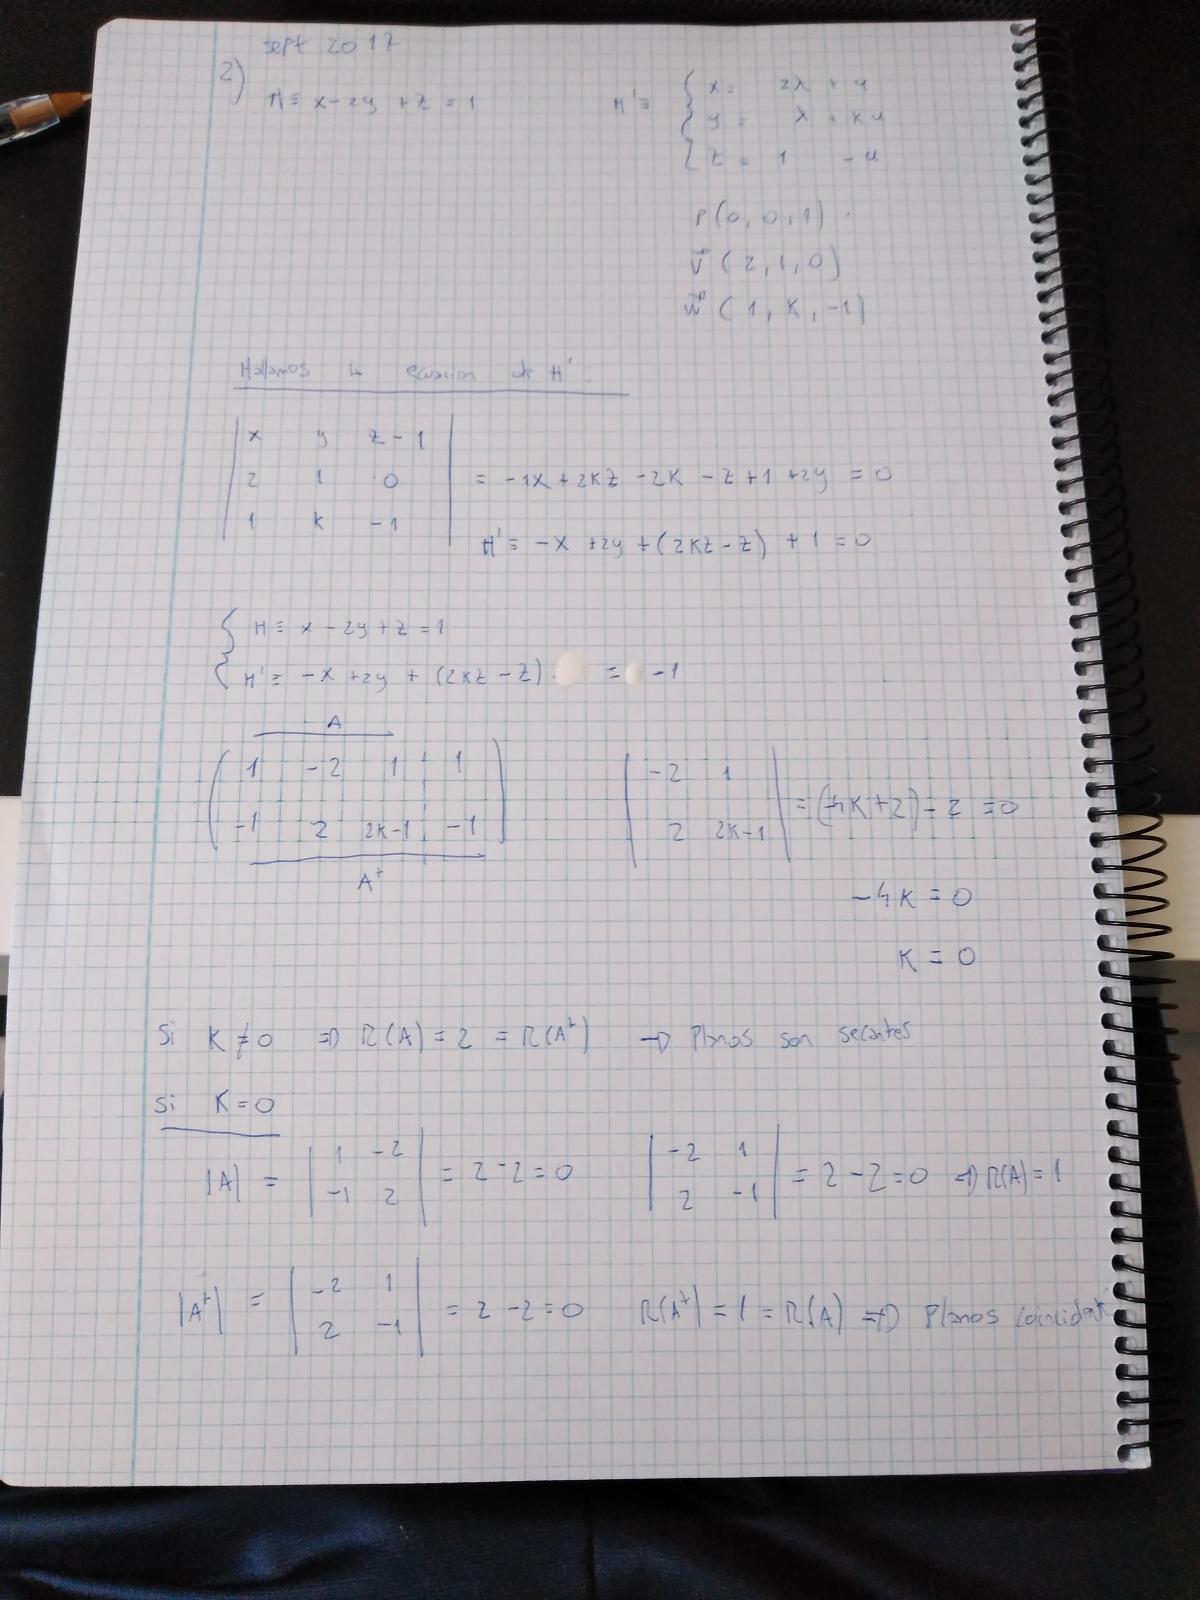 sept 2017
2)
H ≡ x - 2y + z = 1
H' ≡ { x = 2λ + u
y = λ + ku
z = 1 - u
P(0, 0, 1)
v⃗ (2, 1, 0)
w⃗ (1, K, -1)
Hallamos la ecuacion de H':
| x y z-1 |
| 2 1 0 | = -1x + 2kz - 2k - z + 1 + 2y = 0
| 1 k -1 |
H' ≡ -x + 2y + (2kz - z) + 1 = 0
{ H ≡ x - 2y + z = 1
H' ≡ -x + 2y + (2kz - z) = -1
A
( 1 -2 1 1 ) | -2 1 |
( -1 2 2k-1 -1 ) | 2 2k-1 | = (-4k+2) - 2 = 0
A⁺
-4k = 0
k = 0
Si K ≠ 0 ⇒ R(A) = 2 = R(A⁺) → Planos son secantes
Si K = 0
|A| = | 1 -2 | = 2 - 2 = 0 | -2 1 | = 2 - 2 = 0 ⇒ R(A) = 1
| -1 2 | | 2 -1 |
|A⁺| = | -2 1 | = 2 - 2 = 0 R(A⁺) = 1 = R(A) ⇒ Planos
| 2 -1 |